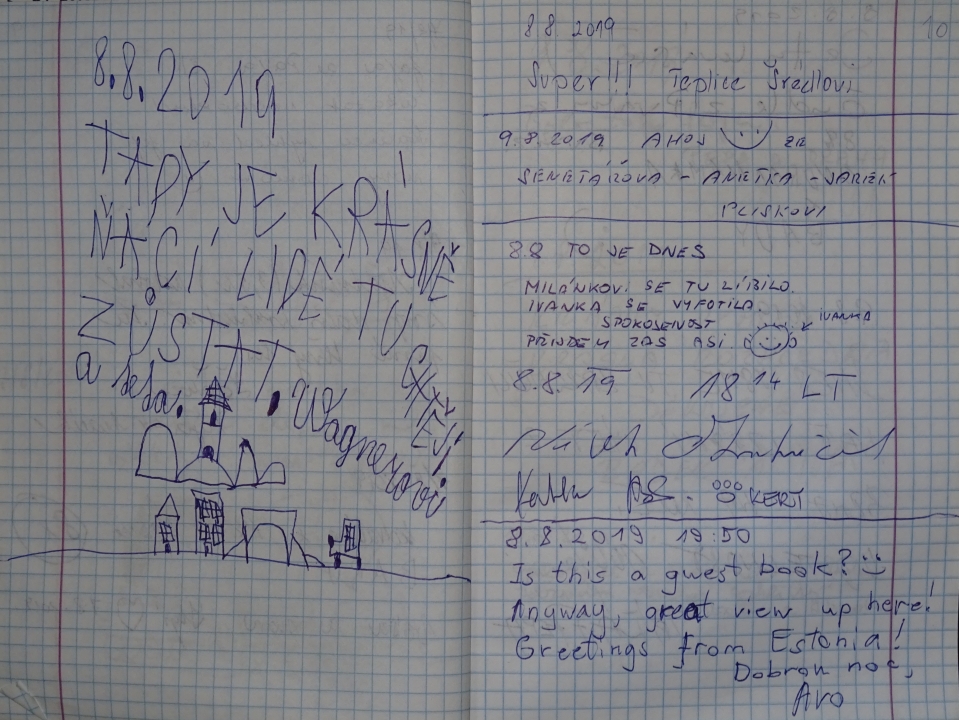 8.8.2019
TADY JE KRÁSNĚ
NÁCÍ LIDÉ TU
ZŮSTAT.
a bába. Wagnerovi
8 8 2019
10
Super!!! Teplice Šrédlovi
9.8.2019 AHOJ ZE
SENETÁŘOVA - ANETKA - JAREK
PLISKOVI
8.8 TO JE DNES
MILÁNKOVI SE TU LÍBILO.
IVANKA SE VYFOTILA.
IVANKA
SPOKOJENOST
PŘINDEM ZAS ASI.
8.8.19 18 14 LT
KERT
8.8.2019 19:50
Is this a gwest book?
Anyway, great view up here!
Greetings from Estonia!
Dobrou noc,
Avo